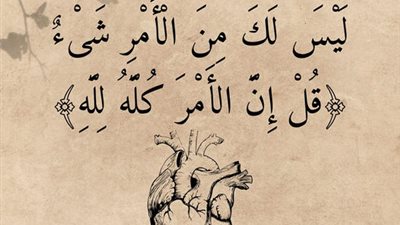 لَيْسَ لَكَ مِنَ الْأَمْرِ شَىْءٌ
﴿قُلْ إِنَّ الأَمْرَ كُلَّهُ لِلَّهِ﴾